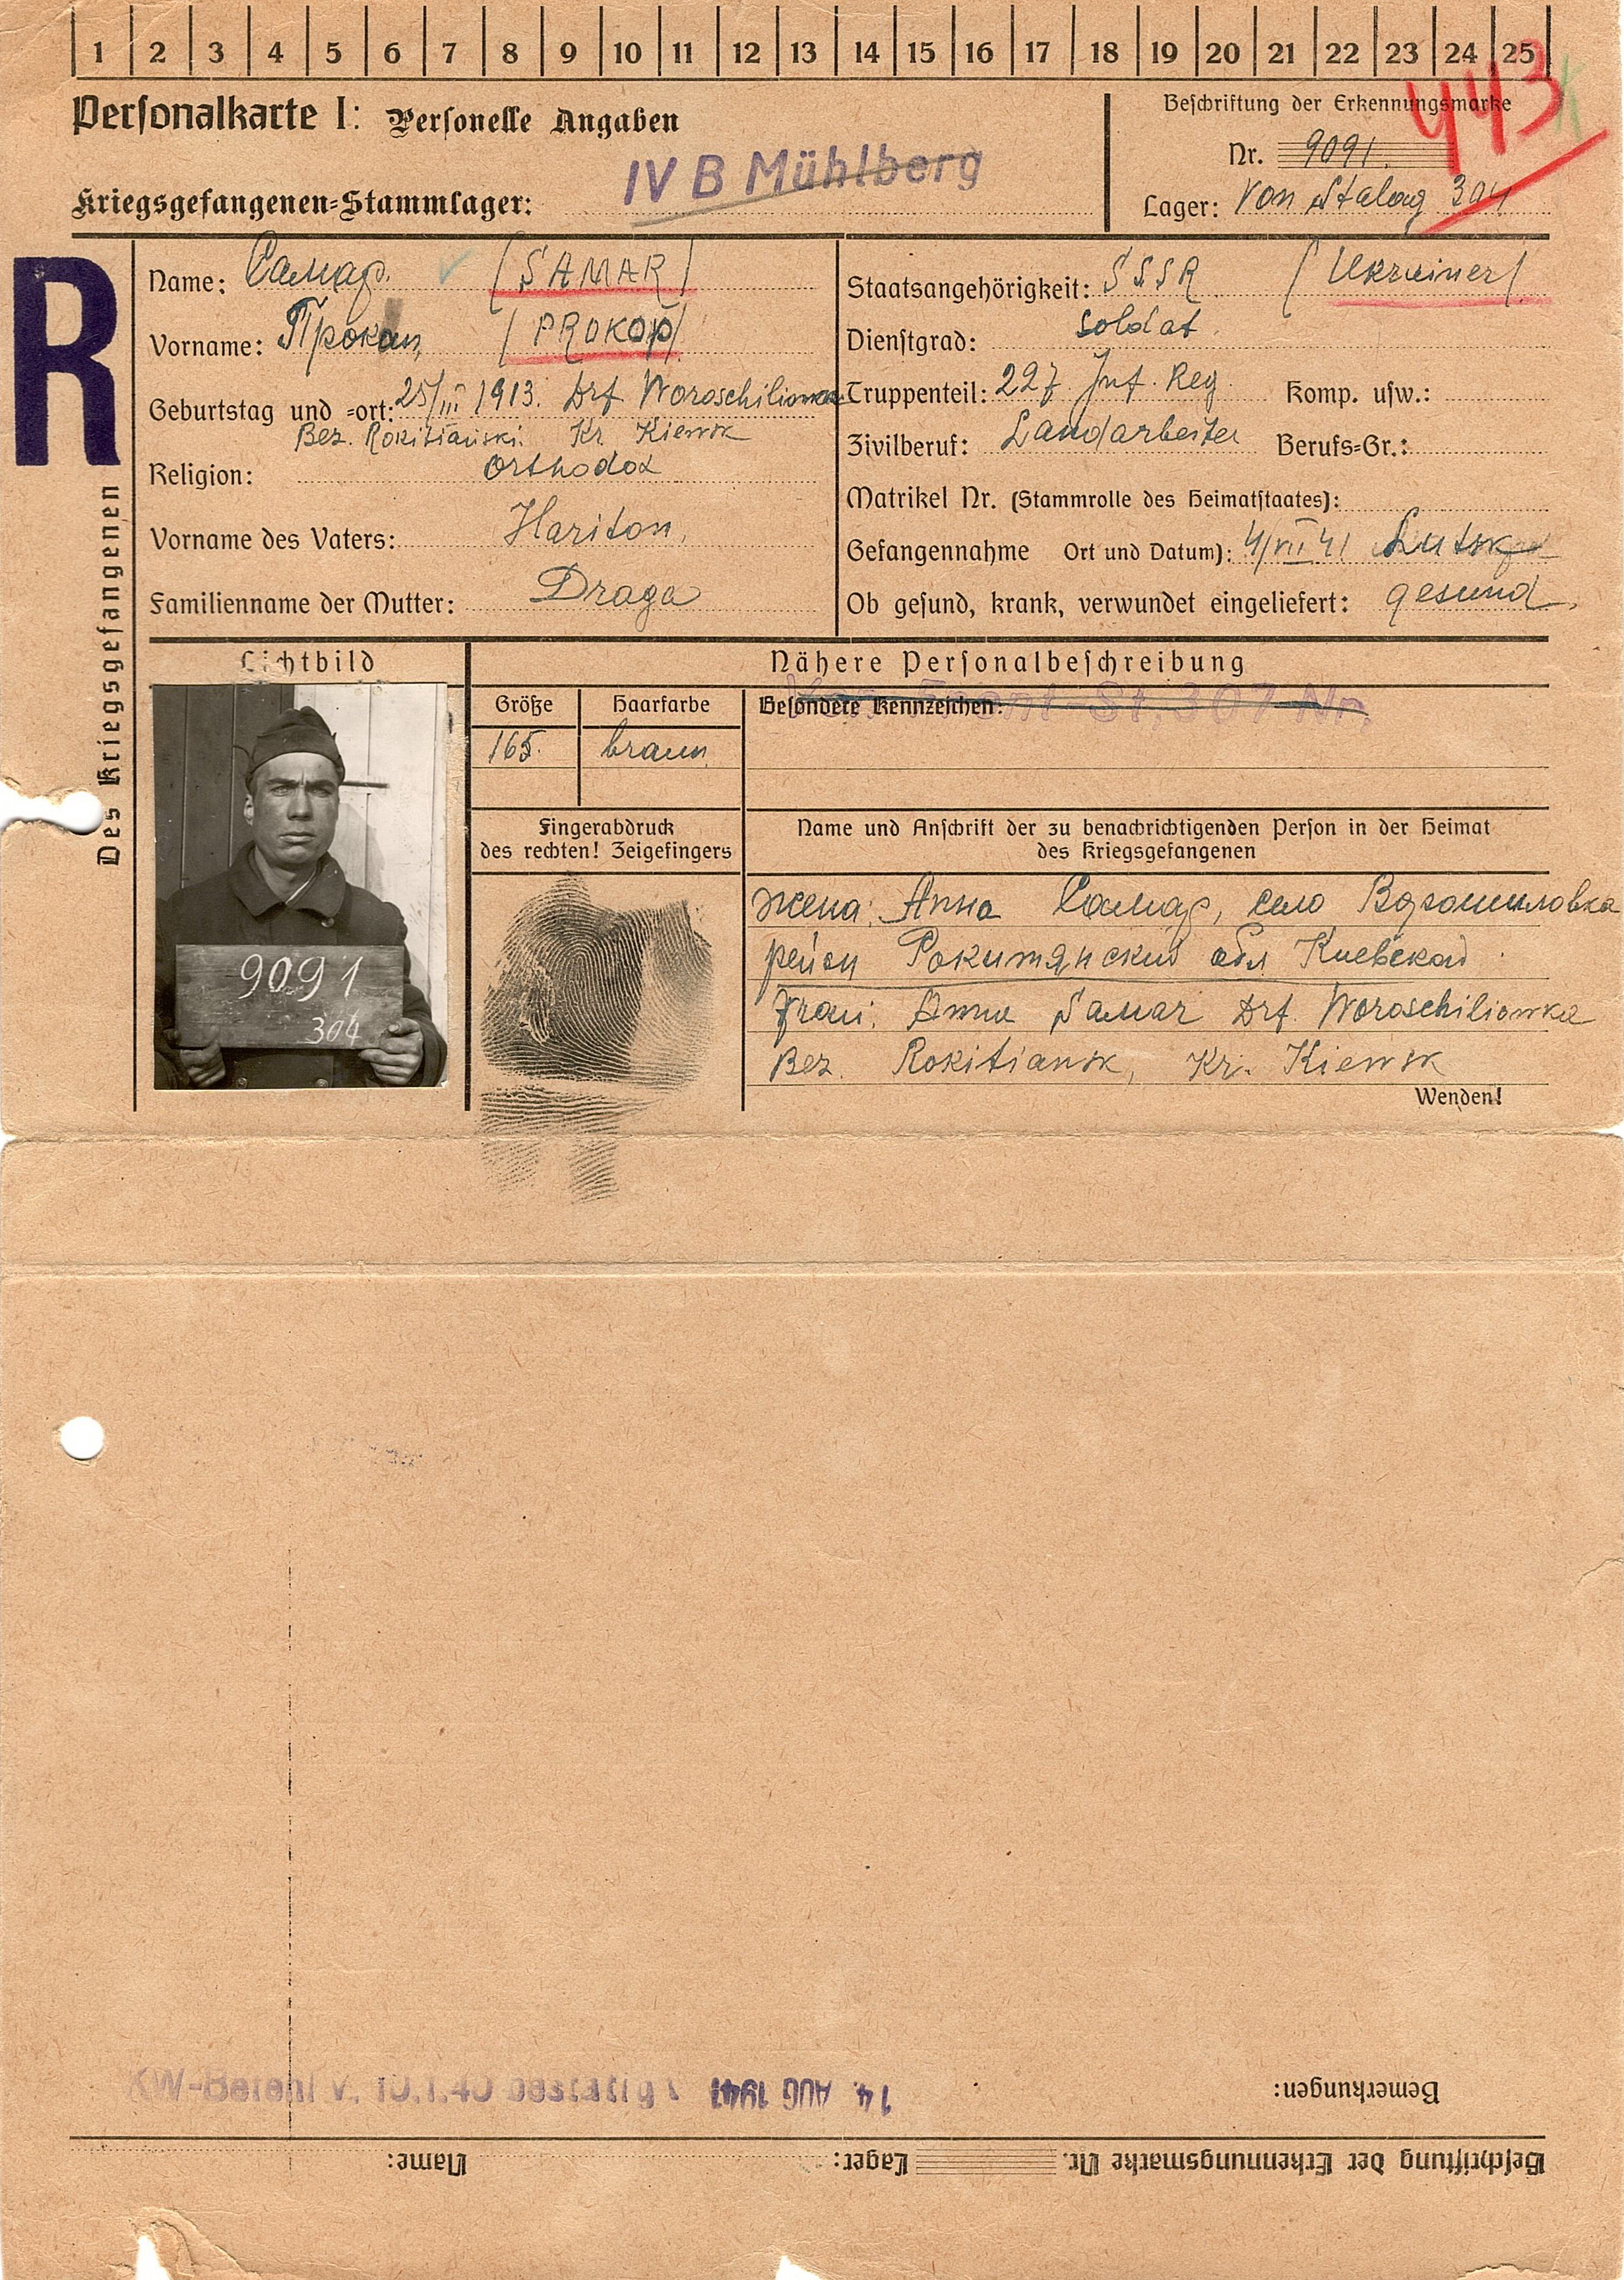 1 2 3 4 5 6 7 8 9 10 11 12 13 14 15 16 17 18 19 20 21 22 23 24 25
Personalkarte I: Personelle Angaben
Beschriftung der Erkennungsmarke
443
Nr. 9091
IV B Mühlberg
Kriegsgefangenen-Stammlager:
Lager: Von Stalag 304
R
Des Kriegsgefangenen
Name: Самар. (SAMAR)
Vorname: Прокоп (PROKOP)
Geburtstag und =ort: 25/III 1913. Drf Woroschiliowka
Bez. Rokitianski. Kr Kiewsk
Religion: Orthodox
Vorname des Vaters: Hariton,
Familienname der Mutter: Draga
Staatsangehörigkeit: SSSR (Ukrainer)
Dienstgrad: Soldat
Truppenteil: 227 Inf. Reg. Komp. usw.:
Zivilberuf: Landarbeiter Berufs=Gr.:
Matrikel Nr. (Stammrolle des Heimatstaates):
Gefangennahme Ort und Datum): 4/VII 41 Lutsk
Ob gesund, krank, verwundet eingeliefert: gesund
Lichtbild
9091
304
Nähere Personalbeschreibung
Größe Haarfarbe
165 braun
Besondere Kennzeichen:
Von Front-St. 307 Nr.
Fingerabdruck
des rechten! Zeigefingers
Name und Anschrift der zu benachrichtigenden Person in der Heimat
des Kriegsgefangenen
жена: Анна Самар, село Ворошиловка
район Рокитянский обл Киевской
Frau: Anna Samar Drf. Woroschiliowka
Bez. Rokitiansk, Kr. Kiewsk
Wenden!
KW-Befehl v. 10.1.40 bestätigt
14. AUG 1941
Bemerkungen:
Beschriftung der Erkennungsmarke Nr. Lager: Name: